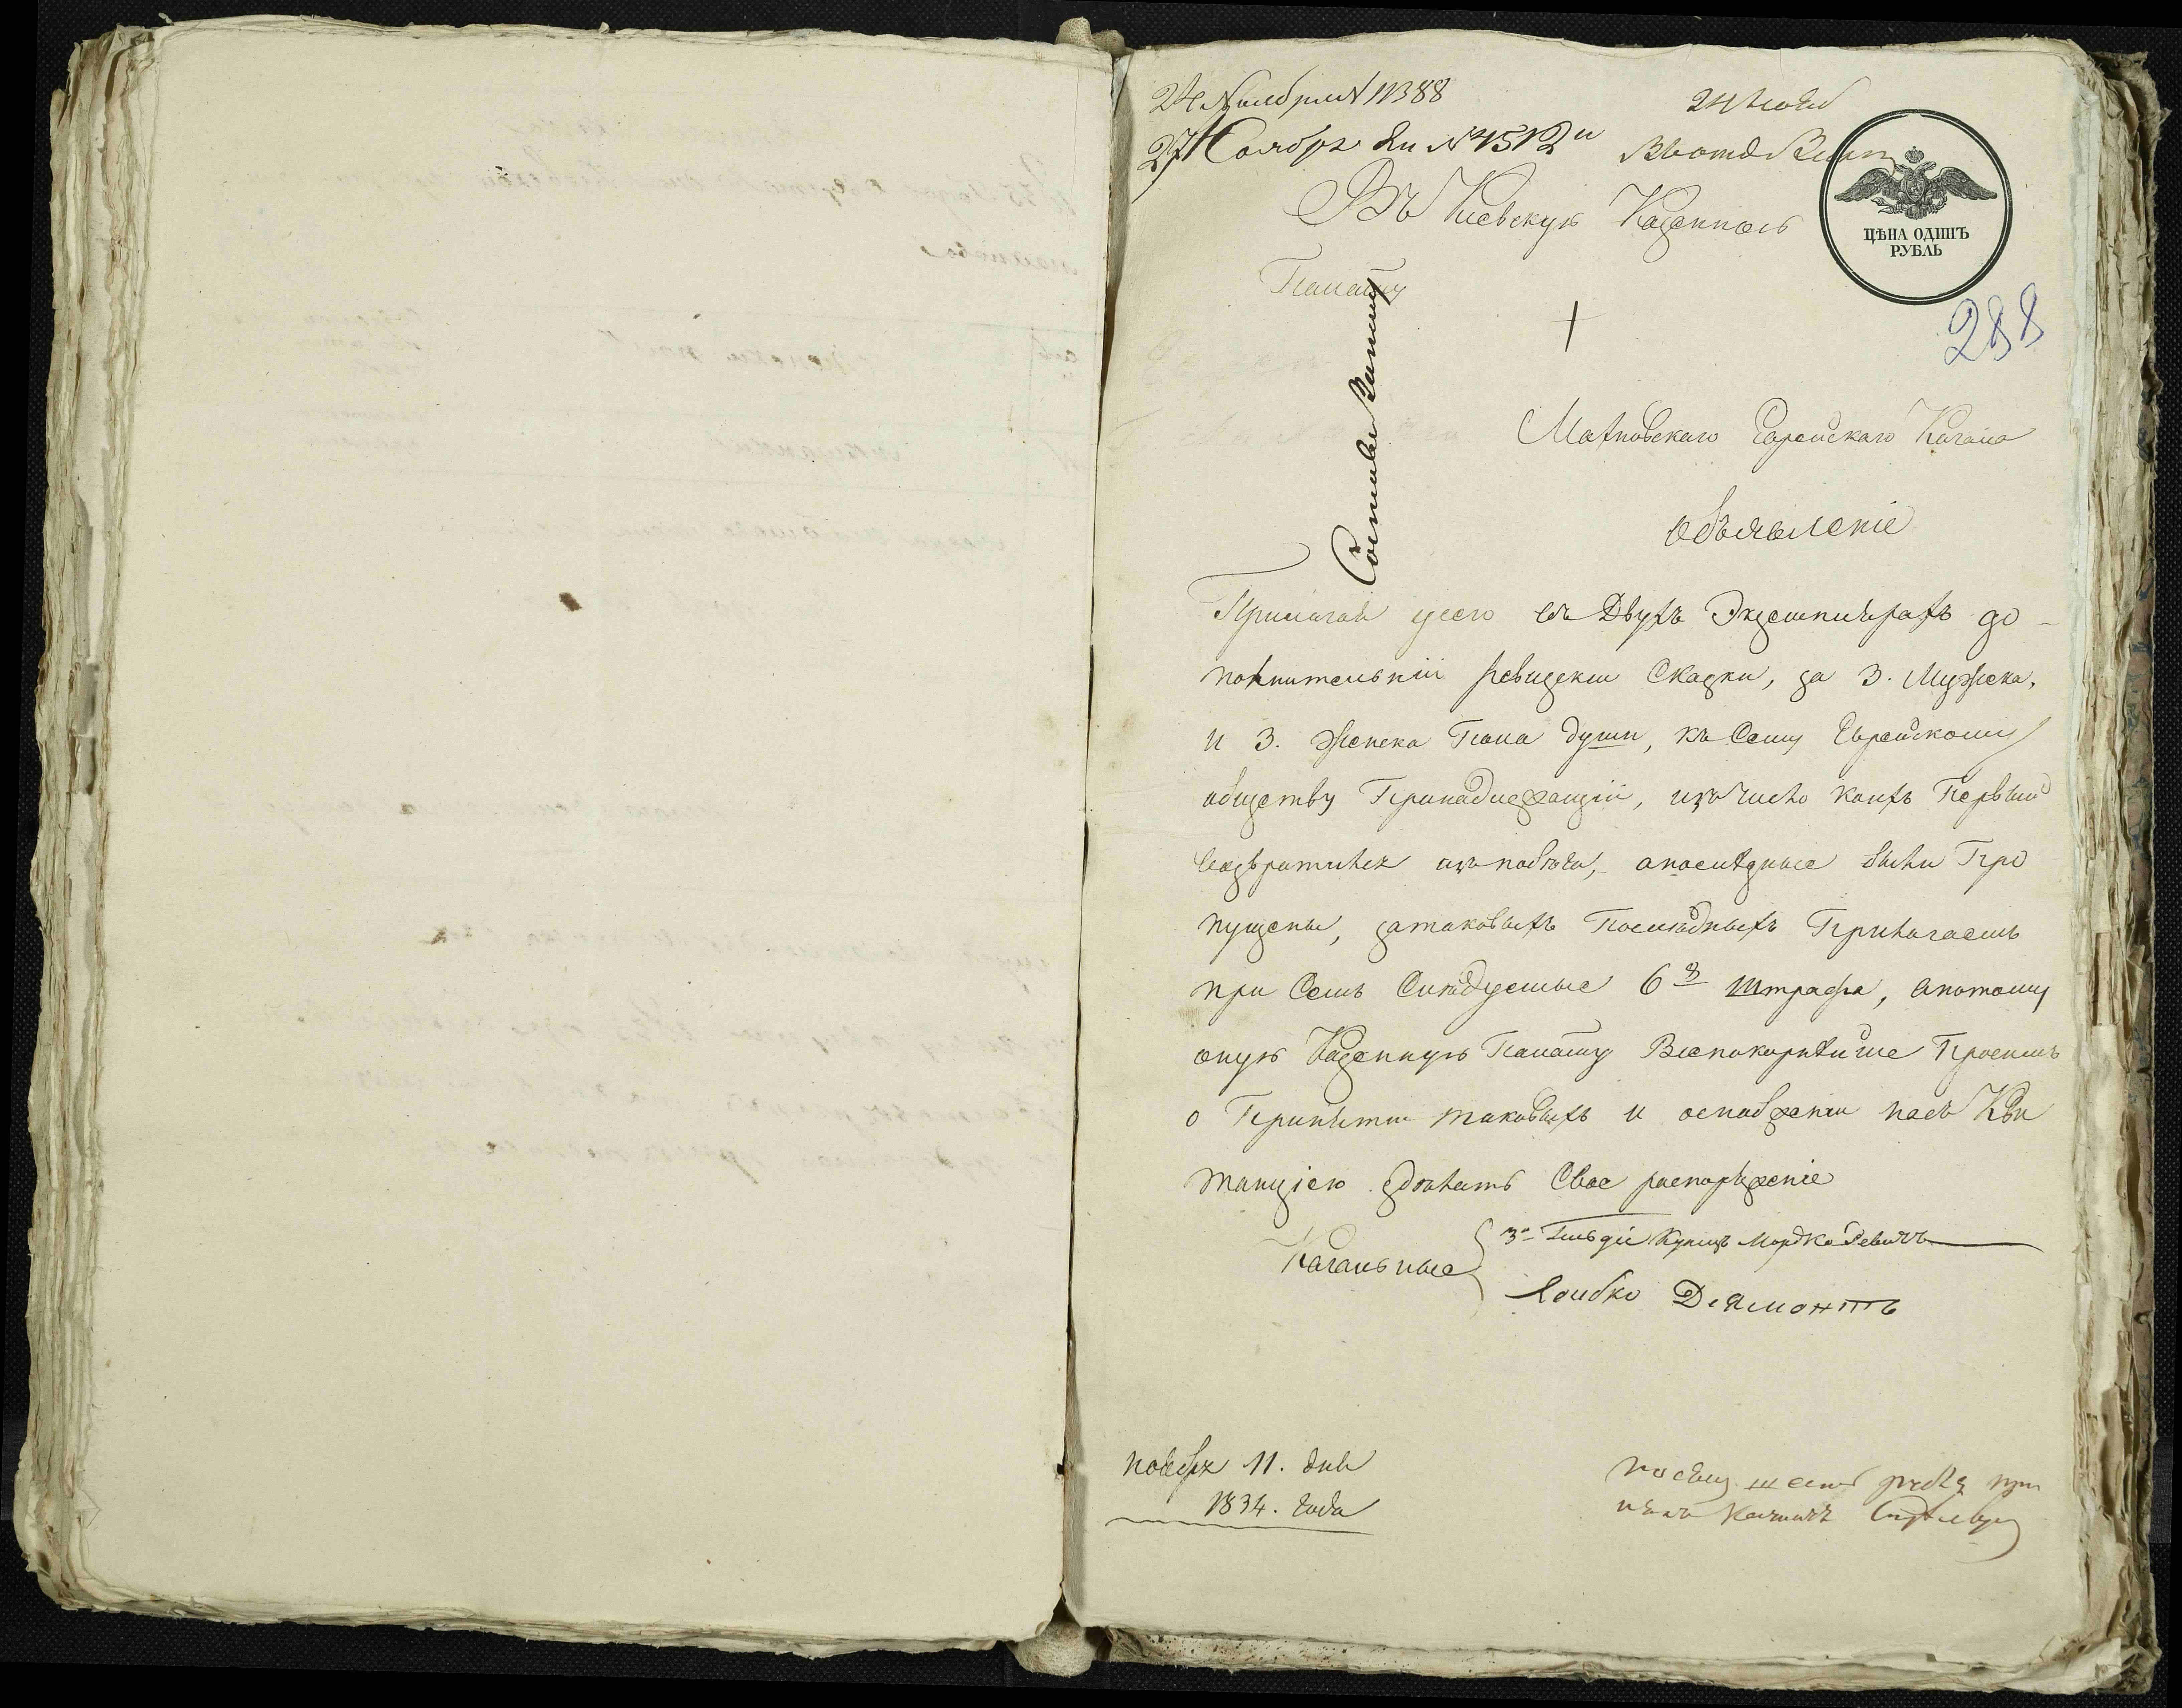 24 Ноября № 11388
27 Ноября № 4513
24 Нояб
Въ Киевскую Казенную
Палату
ЦѢНА ОДИНЪ
РУБЛЬ
288
Еврейскаго Кагала
Объявленіе
Прилагая у сего въ двухъ Экземплярахъ до-
полнительніи ревизскии Сказки, за 3. Мужеска,
и 3. Женска Пола души, къ Сему Еврейскому
обществу Принадлежащіи, изъ число коихъ Первыи
возвратился изъ побега, а последные были Про
пущены, за таковыхъ Последныхъ Прилагаемъ
при Семъ Следуемые 6 р штрафа, а потому
оную Казенную Палату Всепокорнейше Просимъ
о Принятии таковыхъ и о снабжении насъ Кви
танціею зделать Свое распоряженіе
Кагальные
3й Гильдіи Купецъ Мордко Ревичъ
Лейбко Діямонтъ
ноября 11. дня
1834. года
шесть рубле при